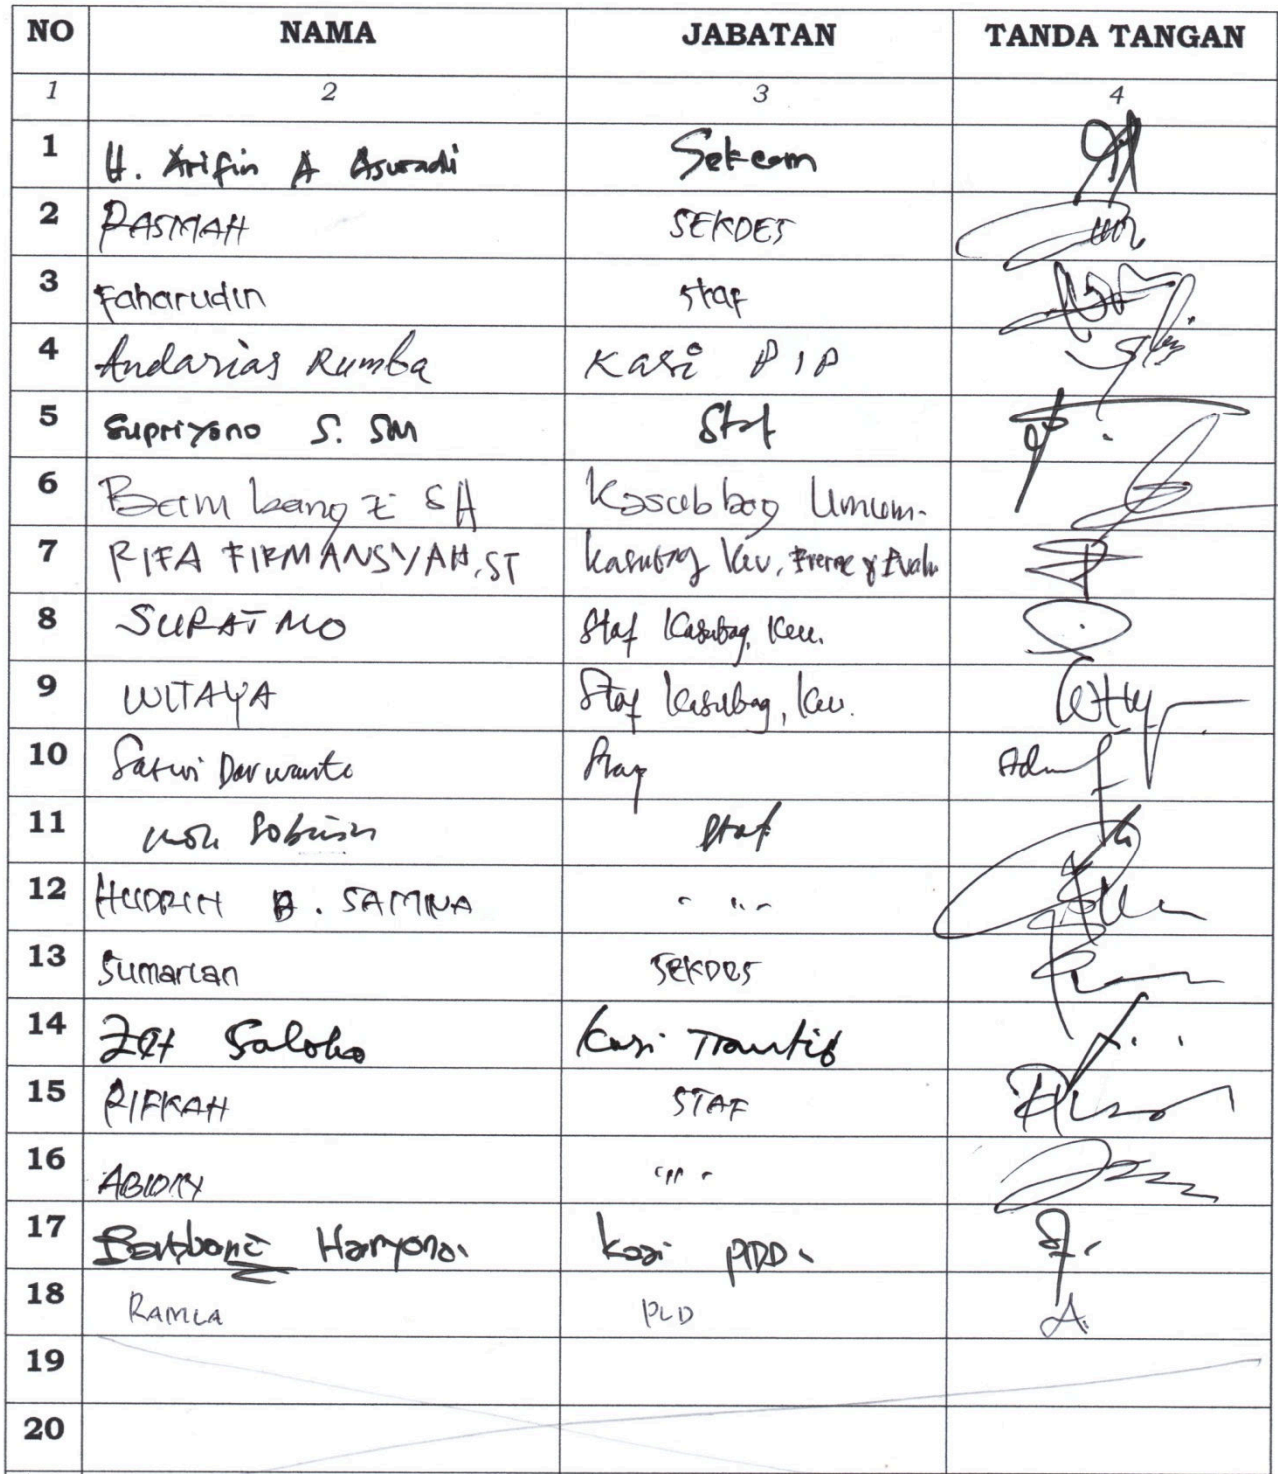 NO NAMA JABATAN TANDA TANGAN
1 2 3 4
1 H. Arifin A Asuradi Sekcam
2 RASMAH SEKDES
3 Faharudin Staf
4 Andarias Rumba Kasi PIP
5 Supriyono S. SM Staf
6 Bambang Z SH Kasubbag Umum.
7 RIFA FIRMANSYAH, ST Kasubag Keu,
8 SURATMO Staf Kasubag, Keu.
9 WITAYA Staf Kasubag, Keu.
10 Darwanto Staf
11 Staf
12 B. SAMMA " "
13 Sumarlan SEKDES
14 Kasi Trantib
15 RIFKAH STAF
16 " "
17 Haryono. Kasi
18 RAMLA PLD
19
20